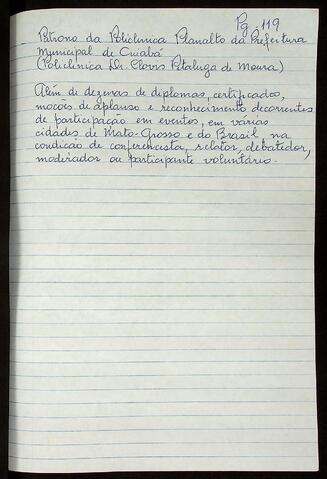 Pg. 119
Patrono da Policlínica Planalto da Prefeitura
Municipal de Cuiabá
(Policlínica Dr. Clovis Pitaluga de Moura)
Além de dezenas de diplomas, certificados,
moções de aplauso e reconhecimento decorrentes
de participação em eventos, em várias
cidades de Mato-Grosso e do Brasil na
condição de conferencista, relator, debatedor,
moderador ou participante voluntário.